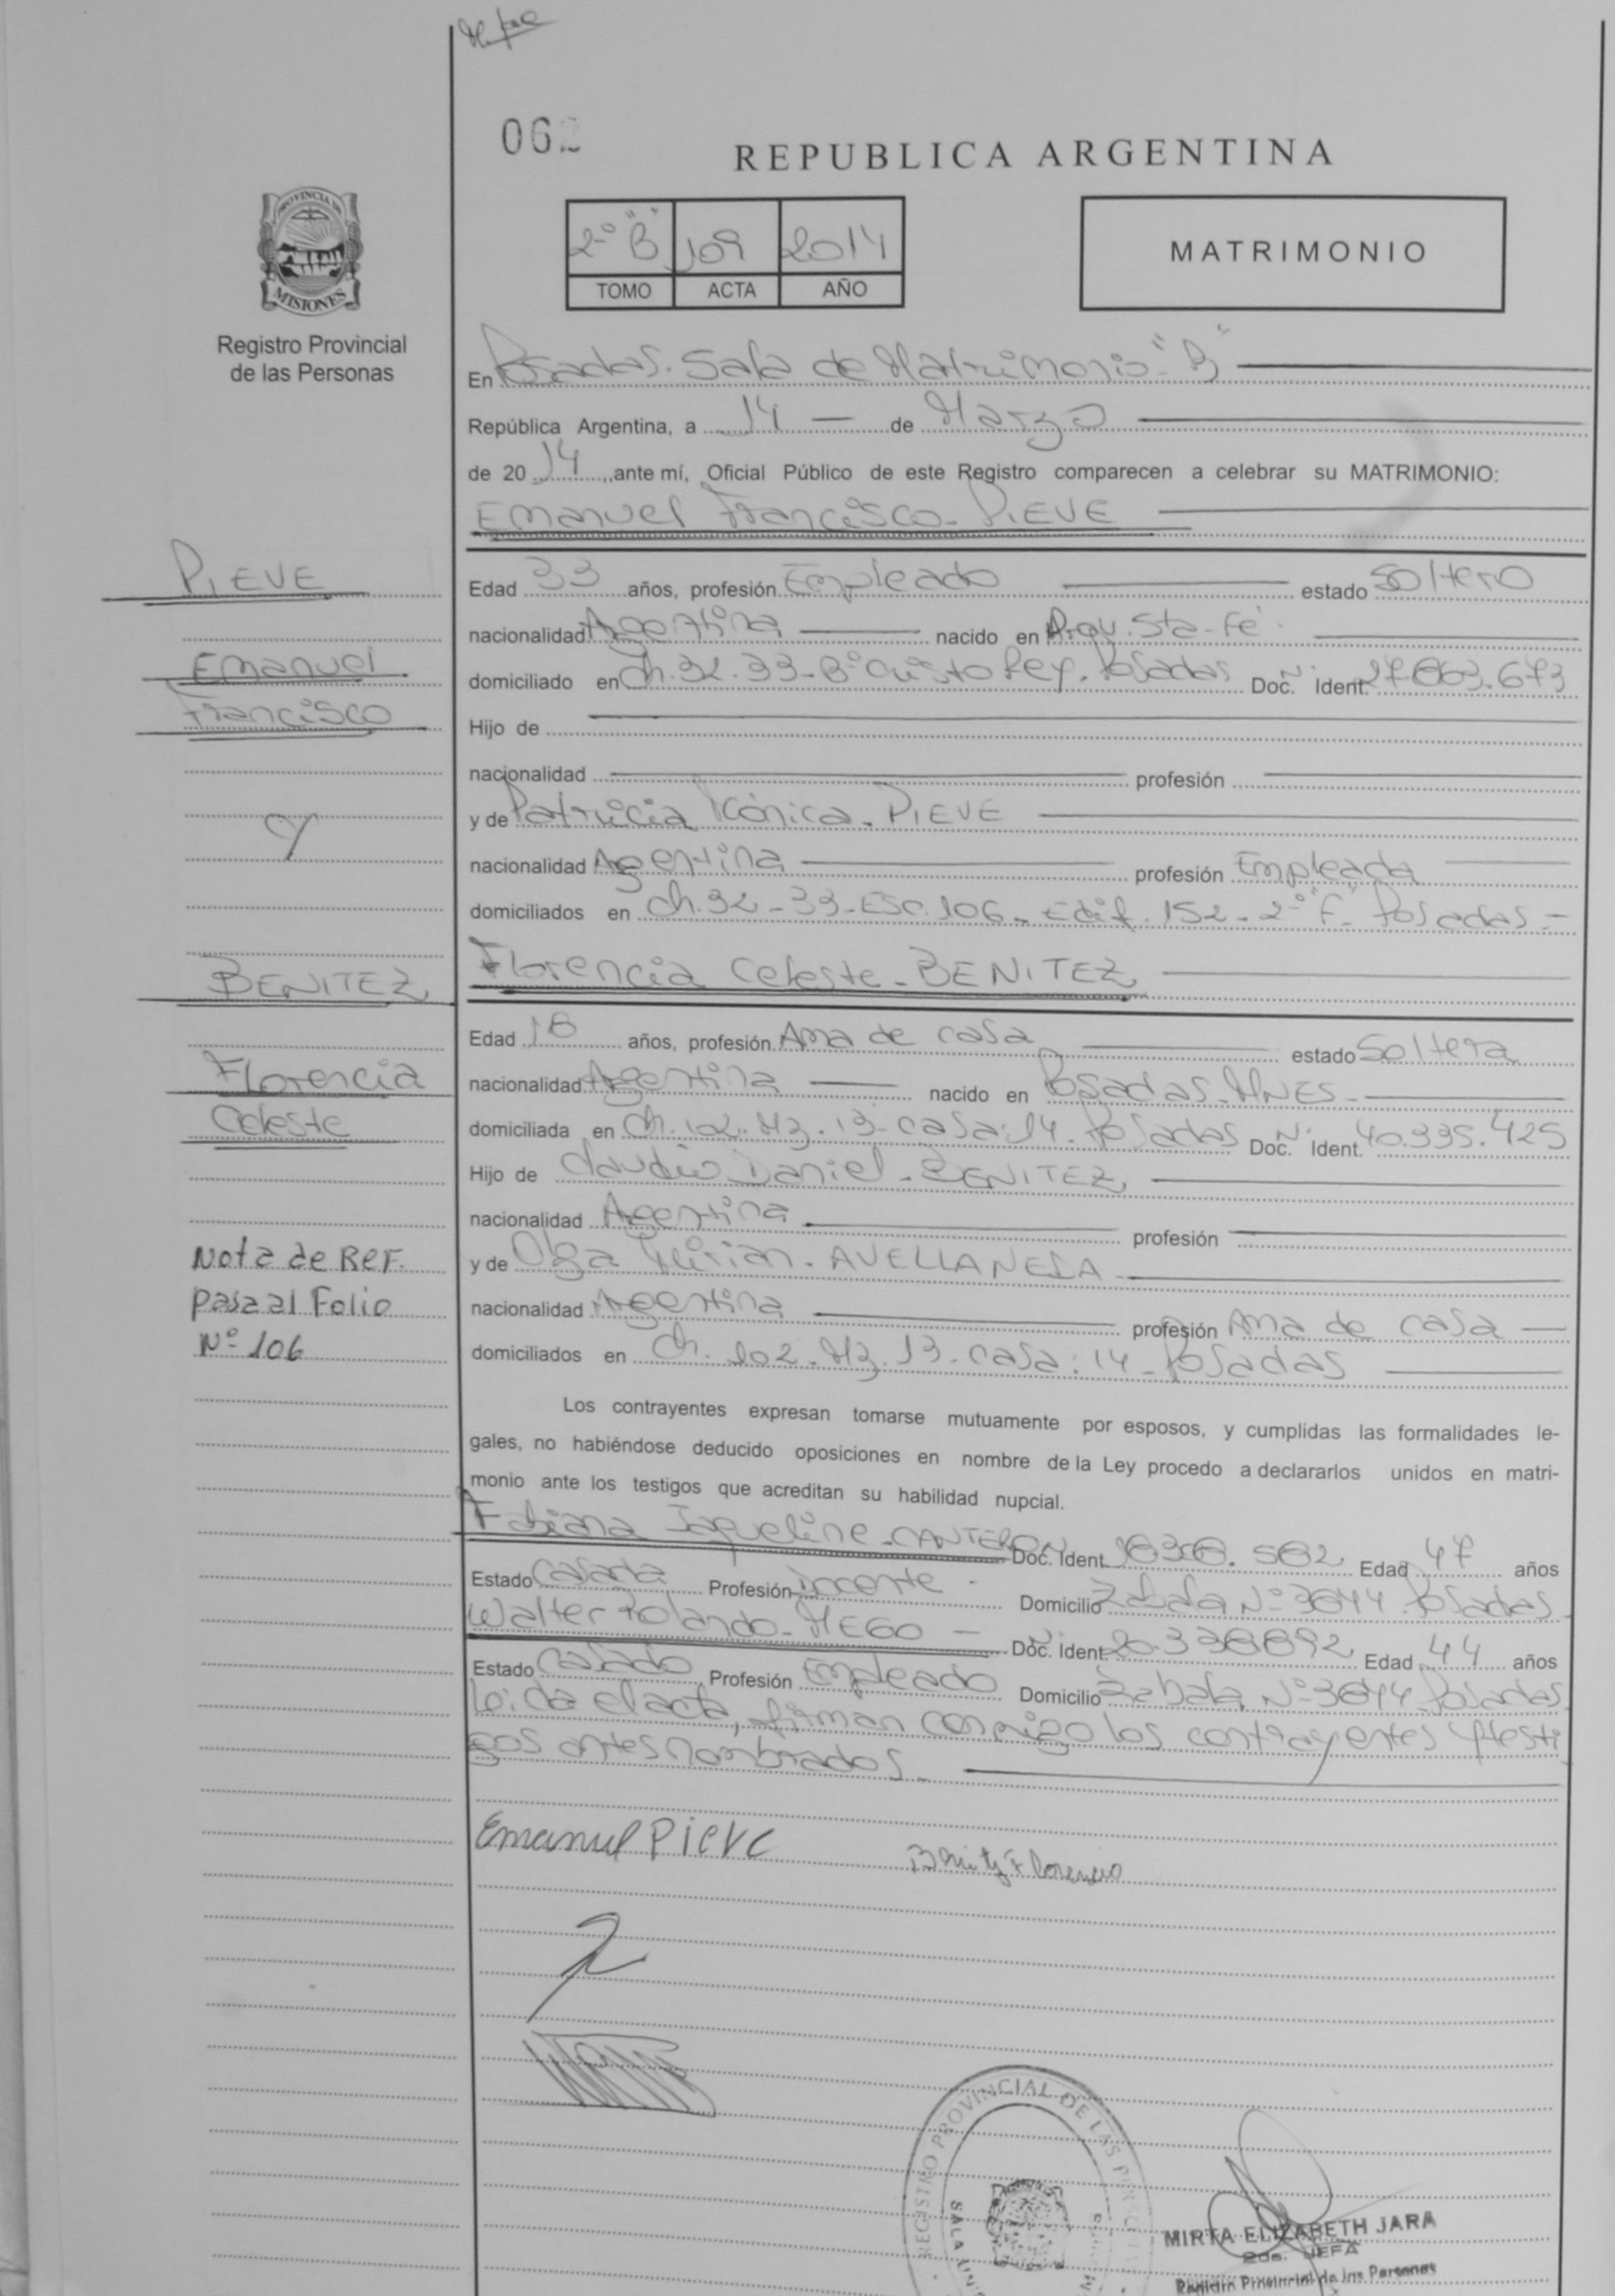 062
REPUBLICA ARGENTINA
PROVINCIA DE
MISIONES
Registro Provincial
de las Personas
2º "B" 109 2014
TOMO ACTA AÑO
MATRIMONIO
En Posadas. Sala de Matrimonio "B"
República Argentina, a 14 de Marzo
de 2014, ante mí, Oficial Público de este Registro comparecen a celebrar su MATRIMONIO:
Emanuel Francisco PIEVE
PIEVE
Emanuel
Francisco
y
BENITEZ
Florencia
Celeste
Nota de Ref.
pasa al Folio
Nº 106
Edad 33 años, profesión Empleado estado Soltero
nacionalidad Argentina nacido en Sta-Fé
domiciliado en Ch. 32-33-Bº Cristo Rey. Posadas Doc. Nº Ident. 27.863.673
Hijo de
nacionalidad profesión
y de Patricia Mónica PIEVE
nacionalidad Argentina profesión Empleada
domiciliados en Ch. 32-33-Esc. 106-Edif. 152-2º "F" Posadas
Florencia Celeste BENITEZ
Edad 18 años, profesión Ama de casa estado Soltera
nacionalidad Argentina nacido en Posadas-MNES
domiciliada en Ch. 102. Mz. 13-casa: 14. Posadas Doc. Nº Ident. 40.335.425
Hijo de Claudio Daniel BENITEZ
nacionalidad Argentina profesión
y de Olga Mirian AVELLANEDA
nacionalidad Argentina profesión Ama de casa
domiciliados en Ch. 102. Mz. 13-casa: 14-Posadas
Los contrayentes expresan tomarse mutuamente por esposos, y cumplidas las formalidades le-
gales, no habiéndose deducido oposiciones en nombre de la Ley procedo a declararlos unidos en matri-
monio ante los testigos que acreditan su habilidad nupcial.
Fabiana Jaqueline CANTERO Doc. Ident. Edad 47 años
Estado Casada Profesión Docente Domicilio Zabala Nº 3644 Posadas
Walter Rolando Doc. Ident. Edad 44 años
Estado Casado Profesión Empleado Domicilio Zabala Nº 3644 Posadas
Leída el acta, firman conmigo los contrayentes y testi
gos antes nombrados.
Emanuel Pieve
Benitez Florencia
REGISTRO PROVINCIAL DE LAS
SALA
MIRTA ELIZABETH JARA
2da. JEFA
Registro Provincial de las Personas